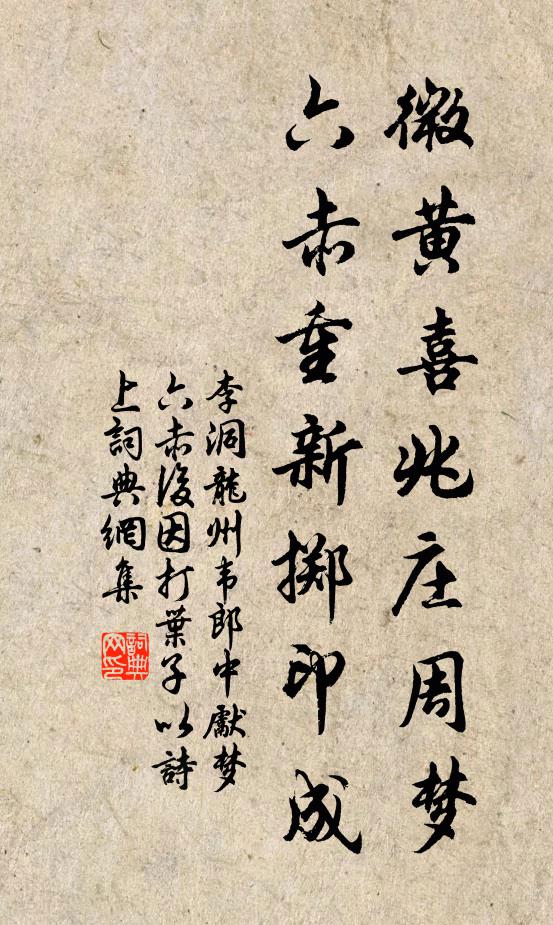 微黄喜兆庄周梦
六赤重新掷印成
李洞龍州韦郎中獻梦
六赤後因打葉子以詩
上詞典網集
詞典网印